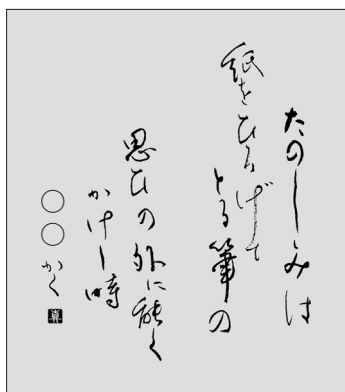 たのしみは
紙をひろげて
とる筆の
思ひの外に能く
かけし時
○○かく